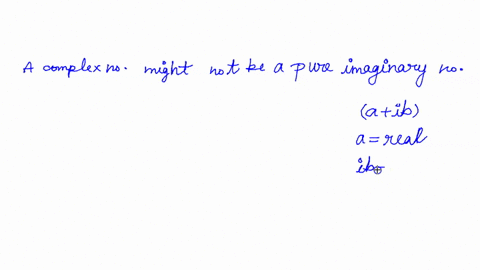 A complex no. might not be a pure imaginary no.
(a+ib)
a = real
ib